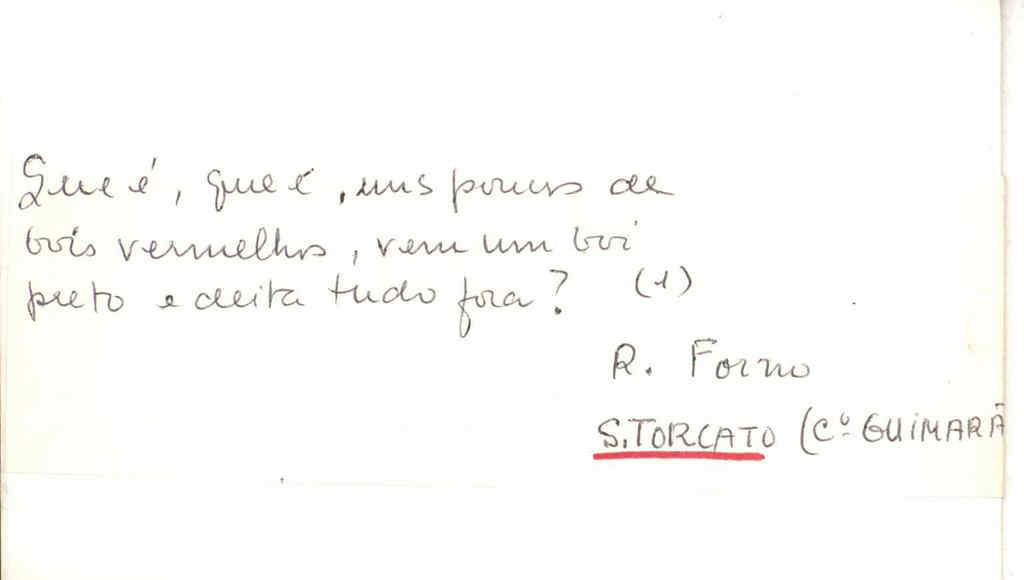 Que é, que é, uns poucos de
bois vermelhos, vem um boi
preto e deita tudo fora? (1)
R. Forno
S. TORCATO (Cº GUIMARÃ